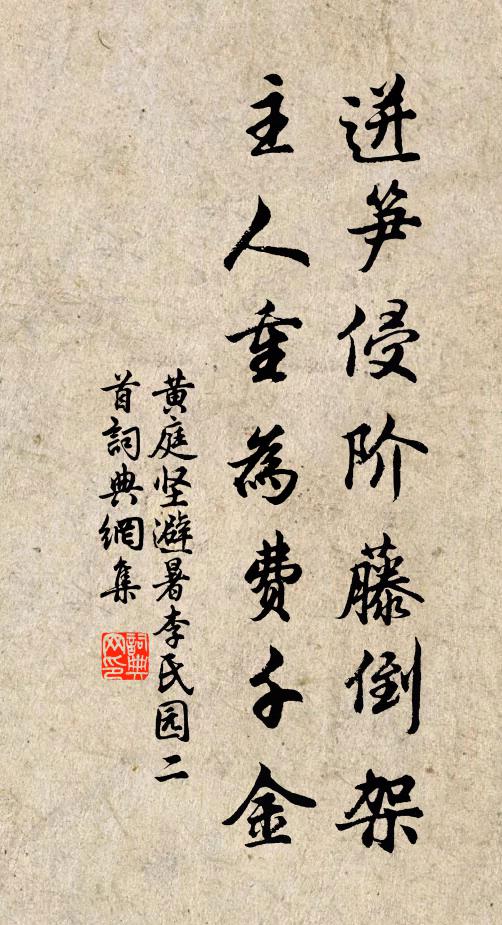 迸笋侵阶藤倒架
主人重為费千金
黄庭坚避暑李氏园二
首詞典網集
詞典
网印